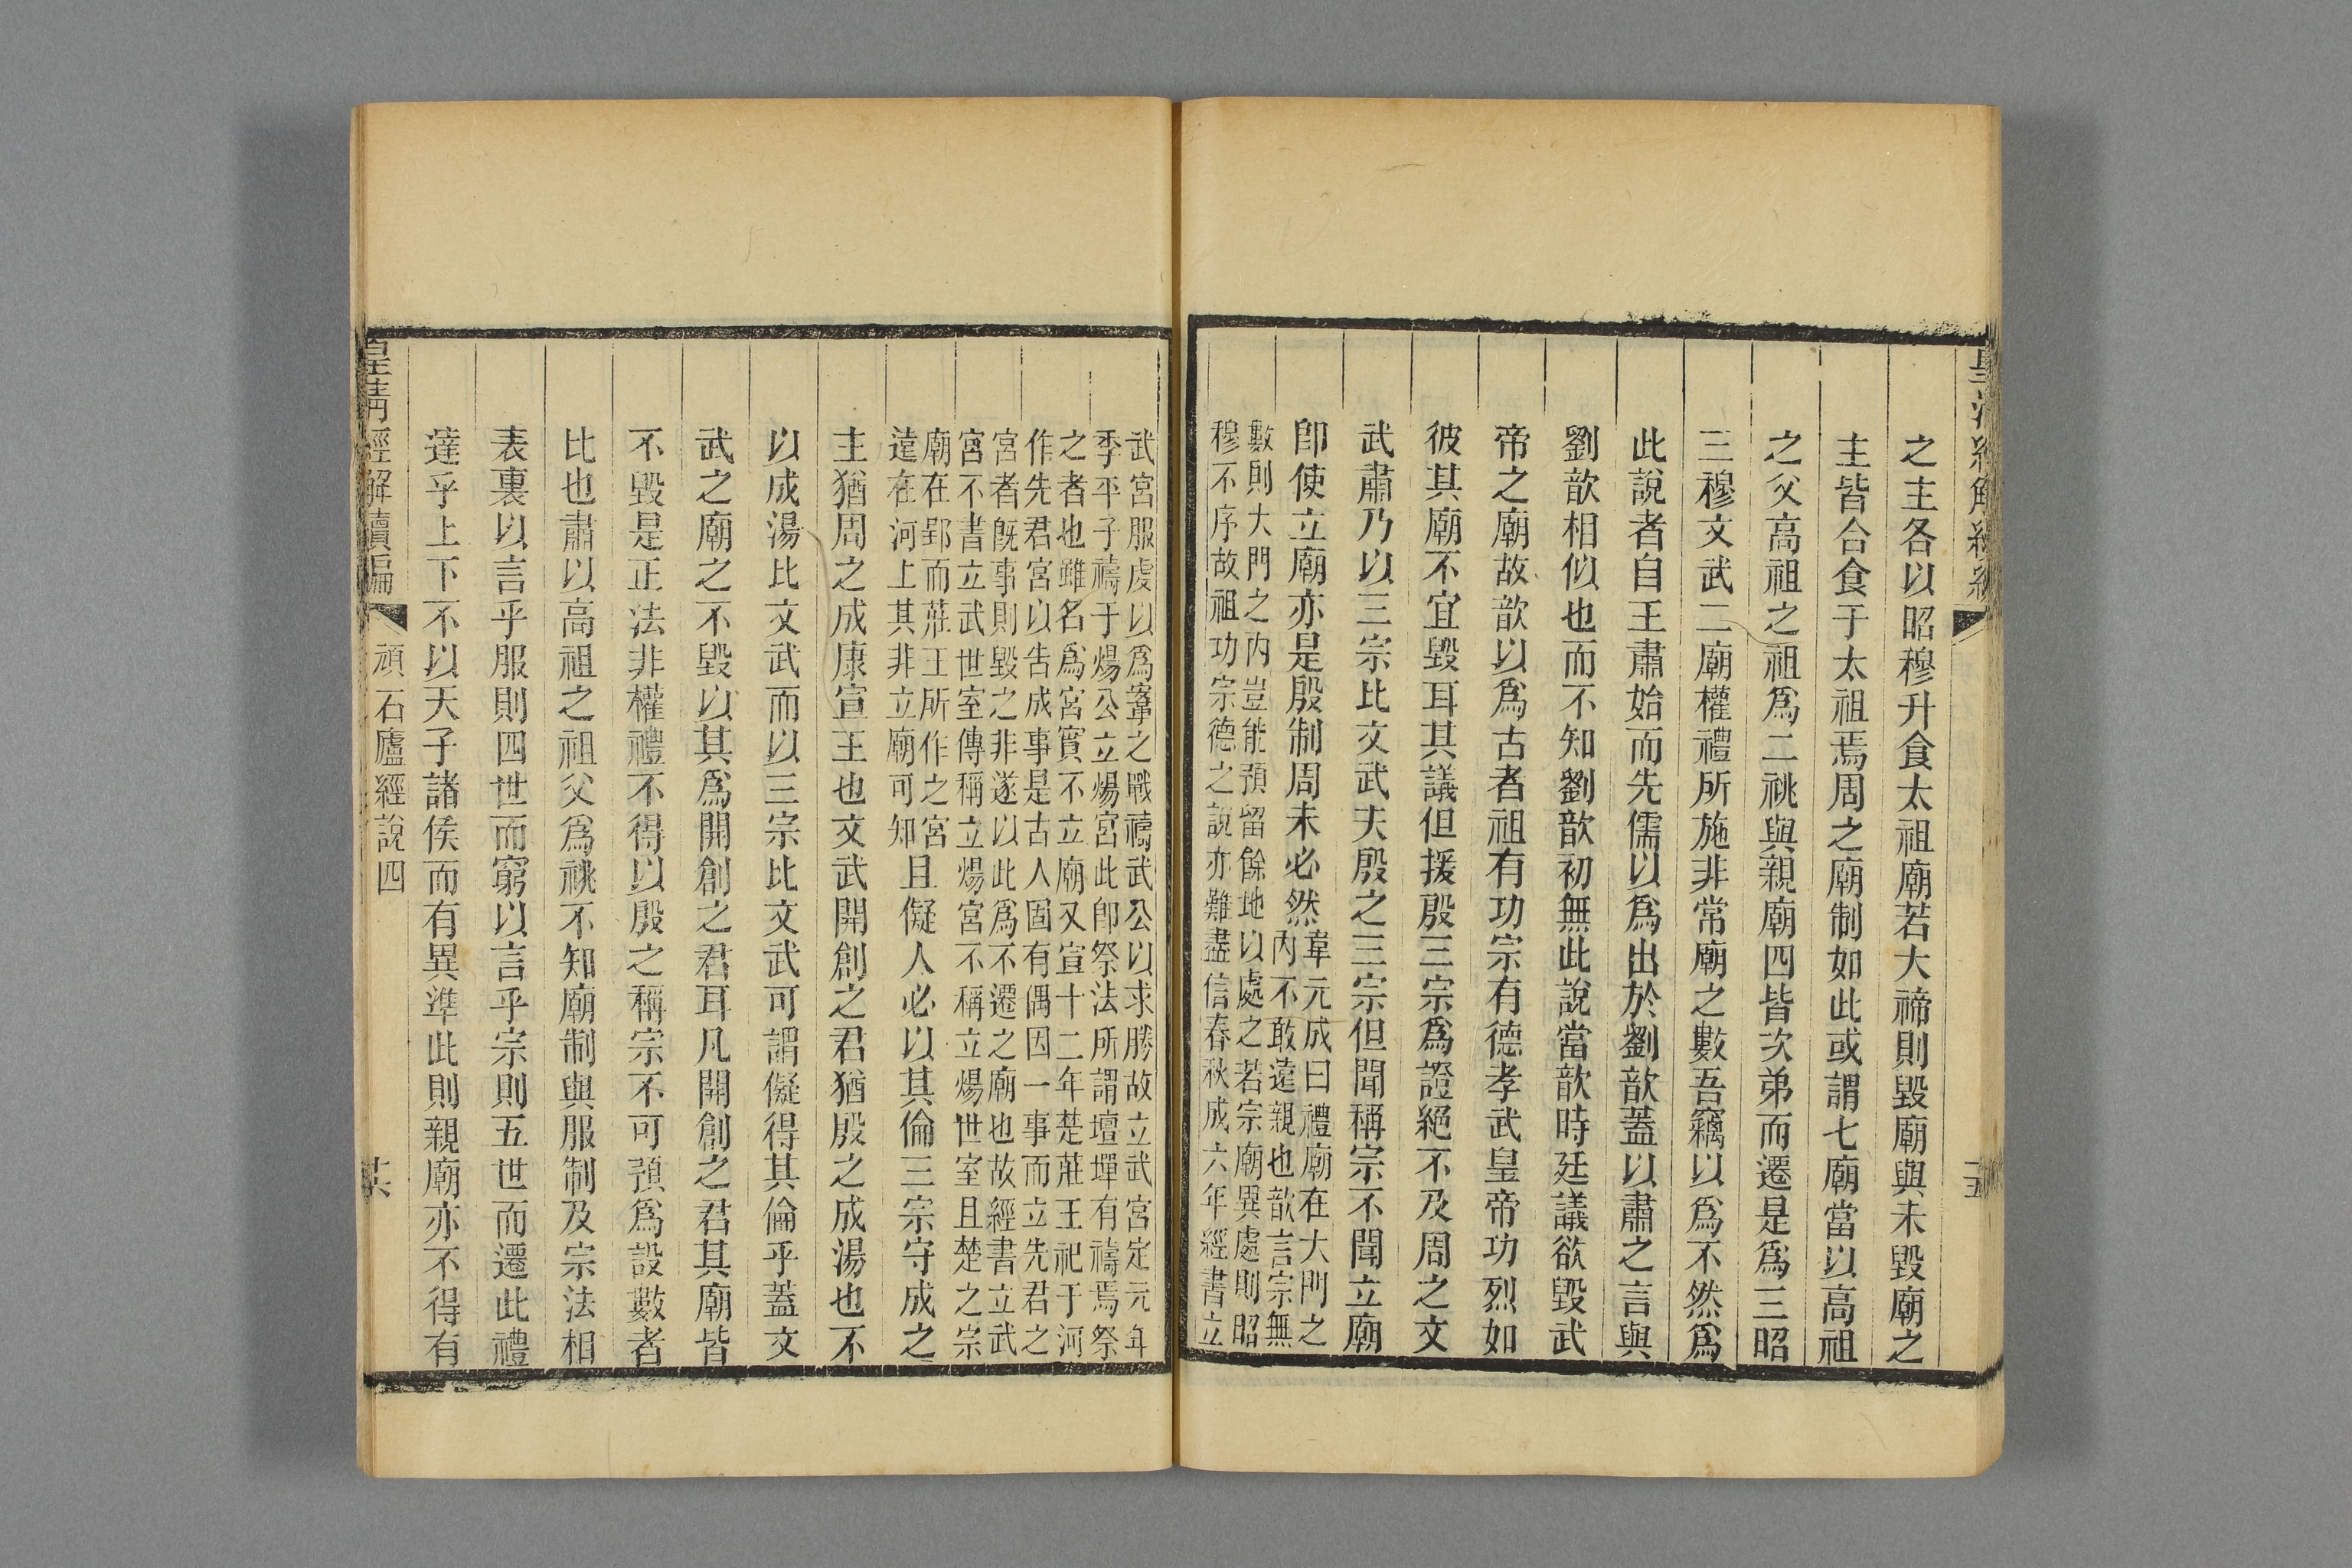 之主各以昭穆升食太祖廟若大禘則毀廟與未毀廟之
主皆合食于太祖焉周之廟制如此或謂七廟當以高祖
之父高祖之祖爲二祧與親廟四皆次弟而遷是爲三昭
三穆文武二廟權禮所施非常廟之數吾竊以爲不然爲
此說者自王肅始而先儒以爲出於劉歆蓋以肅之言與
劉歆相似也而不知劉歆初無此說當歆時廷議欲毀武
帝之廟故歆以爲古者祖有功宗有德孝武皇帝功烈如
彼其廟不宜毀耳其議但援殷三宗爲證絕不及周之文
武肅乃以三宗比文武夫殷之三宗但聞稱宗不聞立廟
卽使立廟亦是殷制周未必然
韋元成曰禮廟在大門之
內不敢遠親也歆言宗無
數則大門之內豈能預留餘地以處之若宗廟異處則昭
穆不序故祖功宗德之說亦難盡信春秋成六年經書立
武宮服虔以爲鞌之戰禱武公以求勝故立武宮定元年
季平子禱于煬公立煬宮此卽祭法所謂壇墠有禱焉祭
之者也雖名爲宮實不立廟又宣十二年楚莊王祀于河
作先君宮以告成事是古人固有偶因一事而立先君之
宮者旣事則毀之非遂以此爲不遷之廟也故經書立武
宮不書立武世室傳稱立煬宮不稱立煬世室且楚之宗
廟在郢而莊王所作之宮
遠在河上其非立廟可知
且儗人必以其倫三宗守成之
主猶周之成康宣王也文武開創之君猶殷之成湯也不
以成湯比文武而以三宗比文武可謂儗得其倫乎蓋文
武之廟之不毀以其爲開創之君耳凡開創之君其廟皆
不毀是正法非權禮不得以殷之稱宗不可預爲設數者
比也肅以高祖之祖父爲祧不知廟制與服制及宗法相
表裏以言乎服則四世而窮以言乎宗則五世而遷此禮
達乎上下不以天子諸侯而有異準此則親廟亦不得有
皇清經解續編
頑石廬經說四